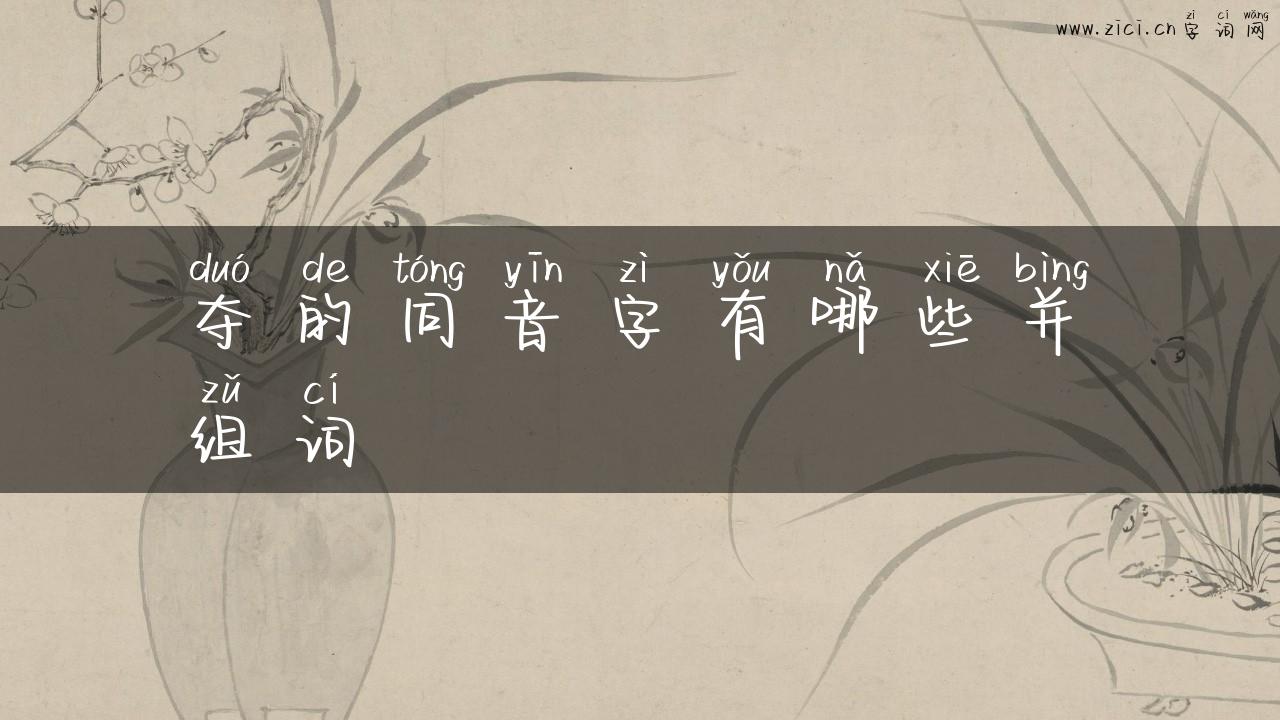 zì cí wǎng
www.zici.cn 字词网
duó de tóng yīn zì yǒu nǎ xiē bìng
夺的同音字有哪些并
zǔ cí
组词